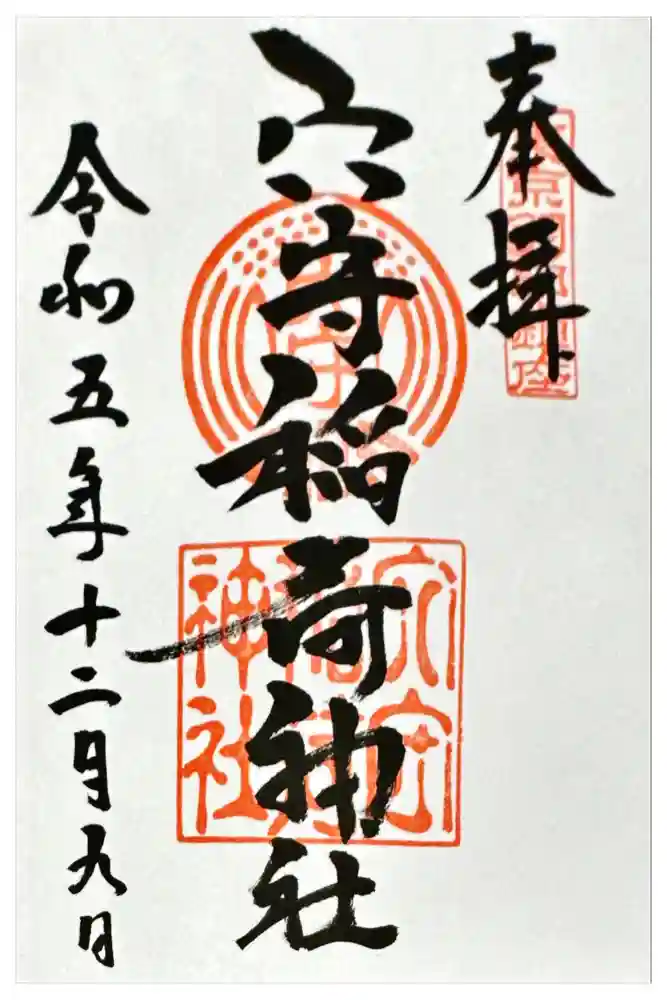 奉拝
東京羽田鎮座
穴守稲荷神社
穴守
稲荷
神社
令和五年十二月九日